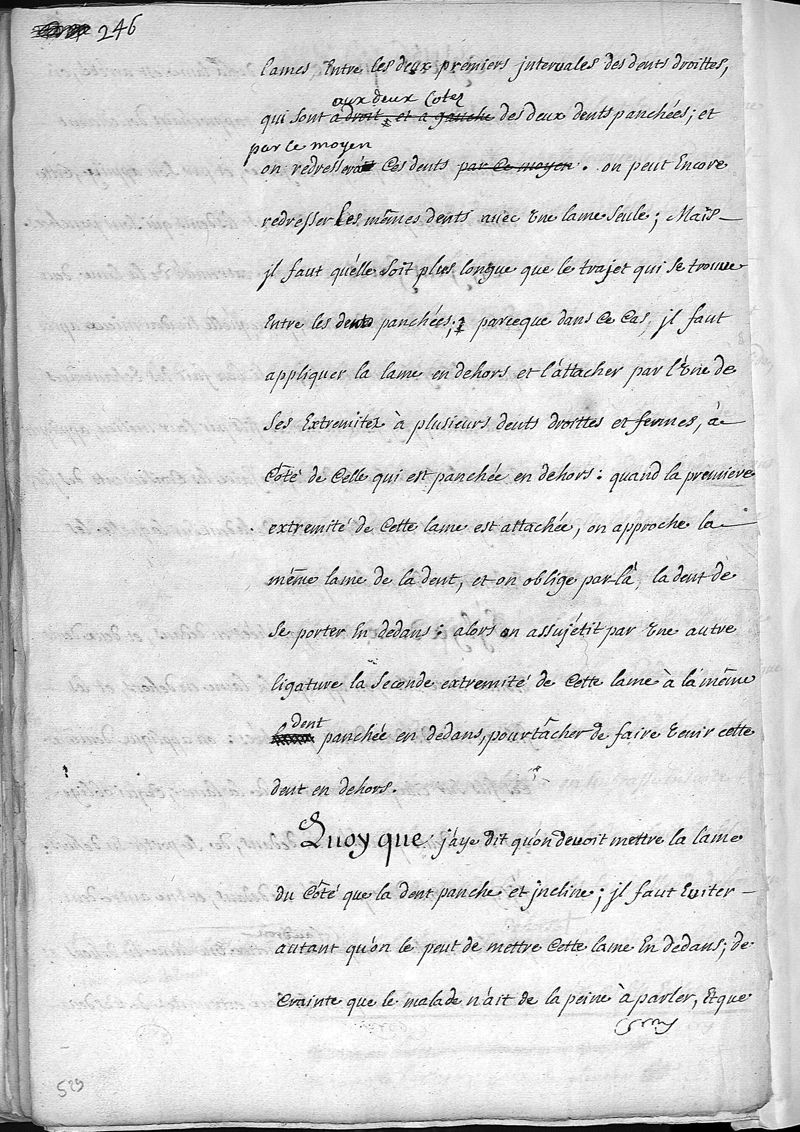 246
lames Entre les deux premiers jntervales des dents droittes,
aux deux Cotez
qui sont a droit, et a gauche des deux dents panchées; et
par ce moyen
on redressera Ces dents par ce moyen. on peut Encore
redresser Les mêmes dents avec Une lame seule; Mais
jl faut quelle soit plus longue que le trajet qui se trouve
Entre les dents panchées; parceque dans Ce Cas, jl faut
appliquer la lame en dehors et l'áttacher par l'Une de
Ses Extremitez à plusieurs dents droittes et fermes, à
Côté de Celle qui est panchée en dehors: quand la premiere
extremité de Cette lame est attachée, on approche la
même lame de la dent, et on oblige par là, la dent de
se porter En dedans; alors on assujétit par Une autre
ligature la Seconde extremité de Cette lame à la même
dent
panchée en dedans, pour tâcher de faire Venir cette
dent en dehors.
Quoy que j'aye dit qu'on devoit mettre la lame
du Côté que la dent panche et jncline; jl faut Eviter
autant qu'on le peut de mettre Cette lame En dedans; de
Crainte que le malade n'ait de la peine à parler, Et que
529